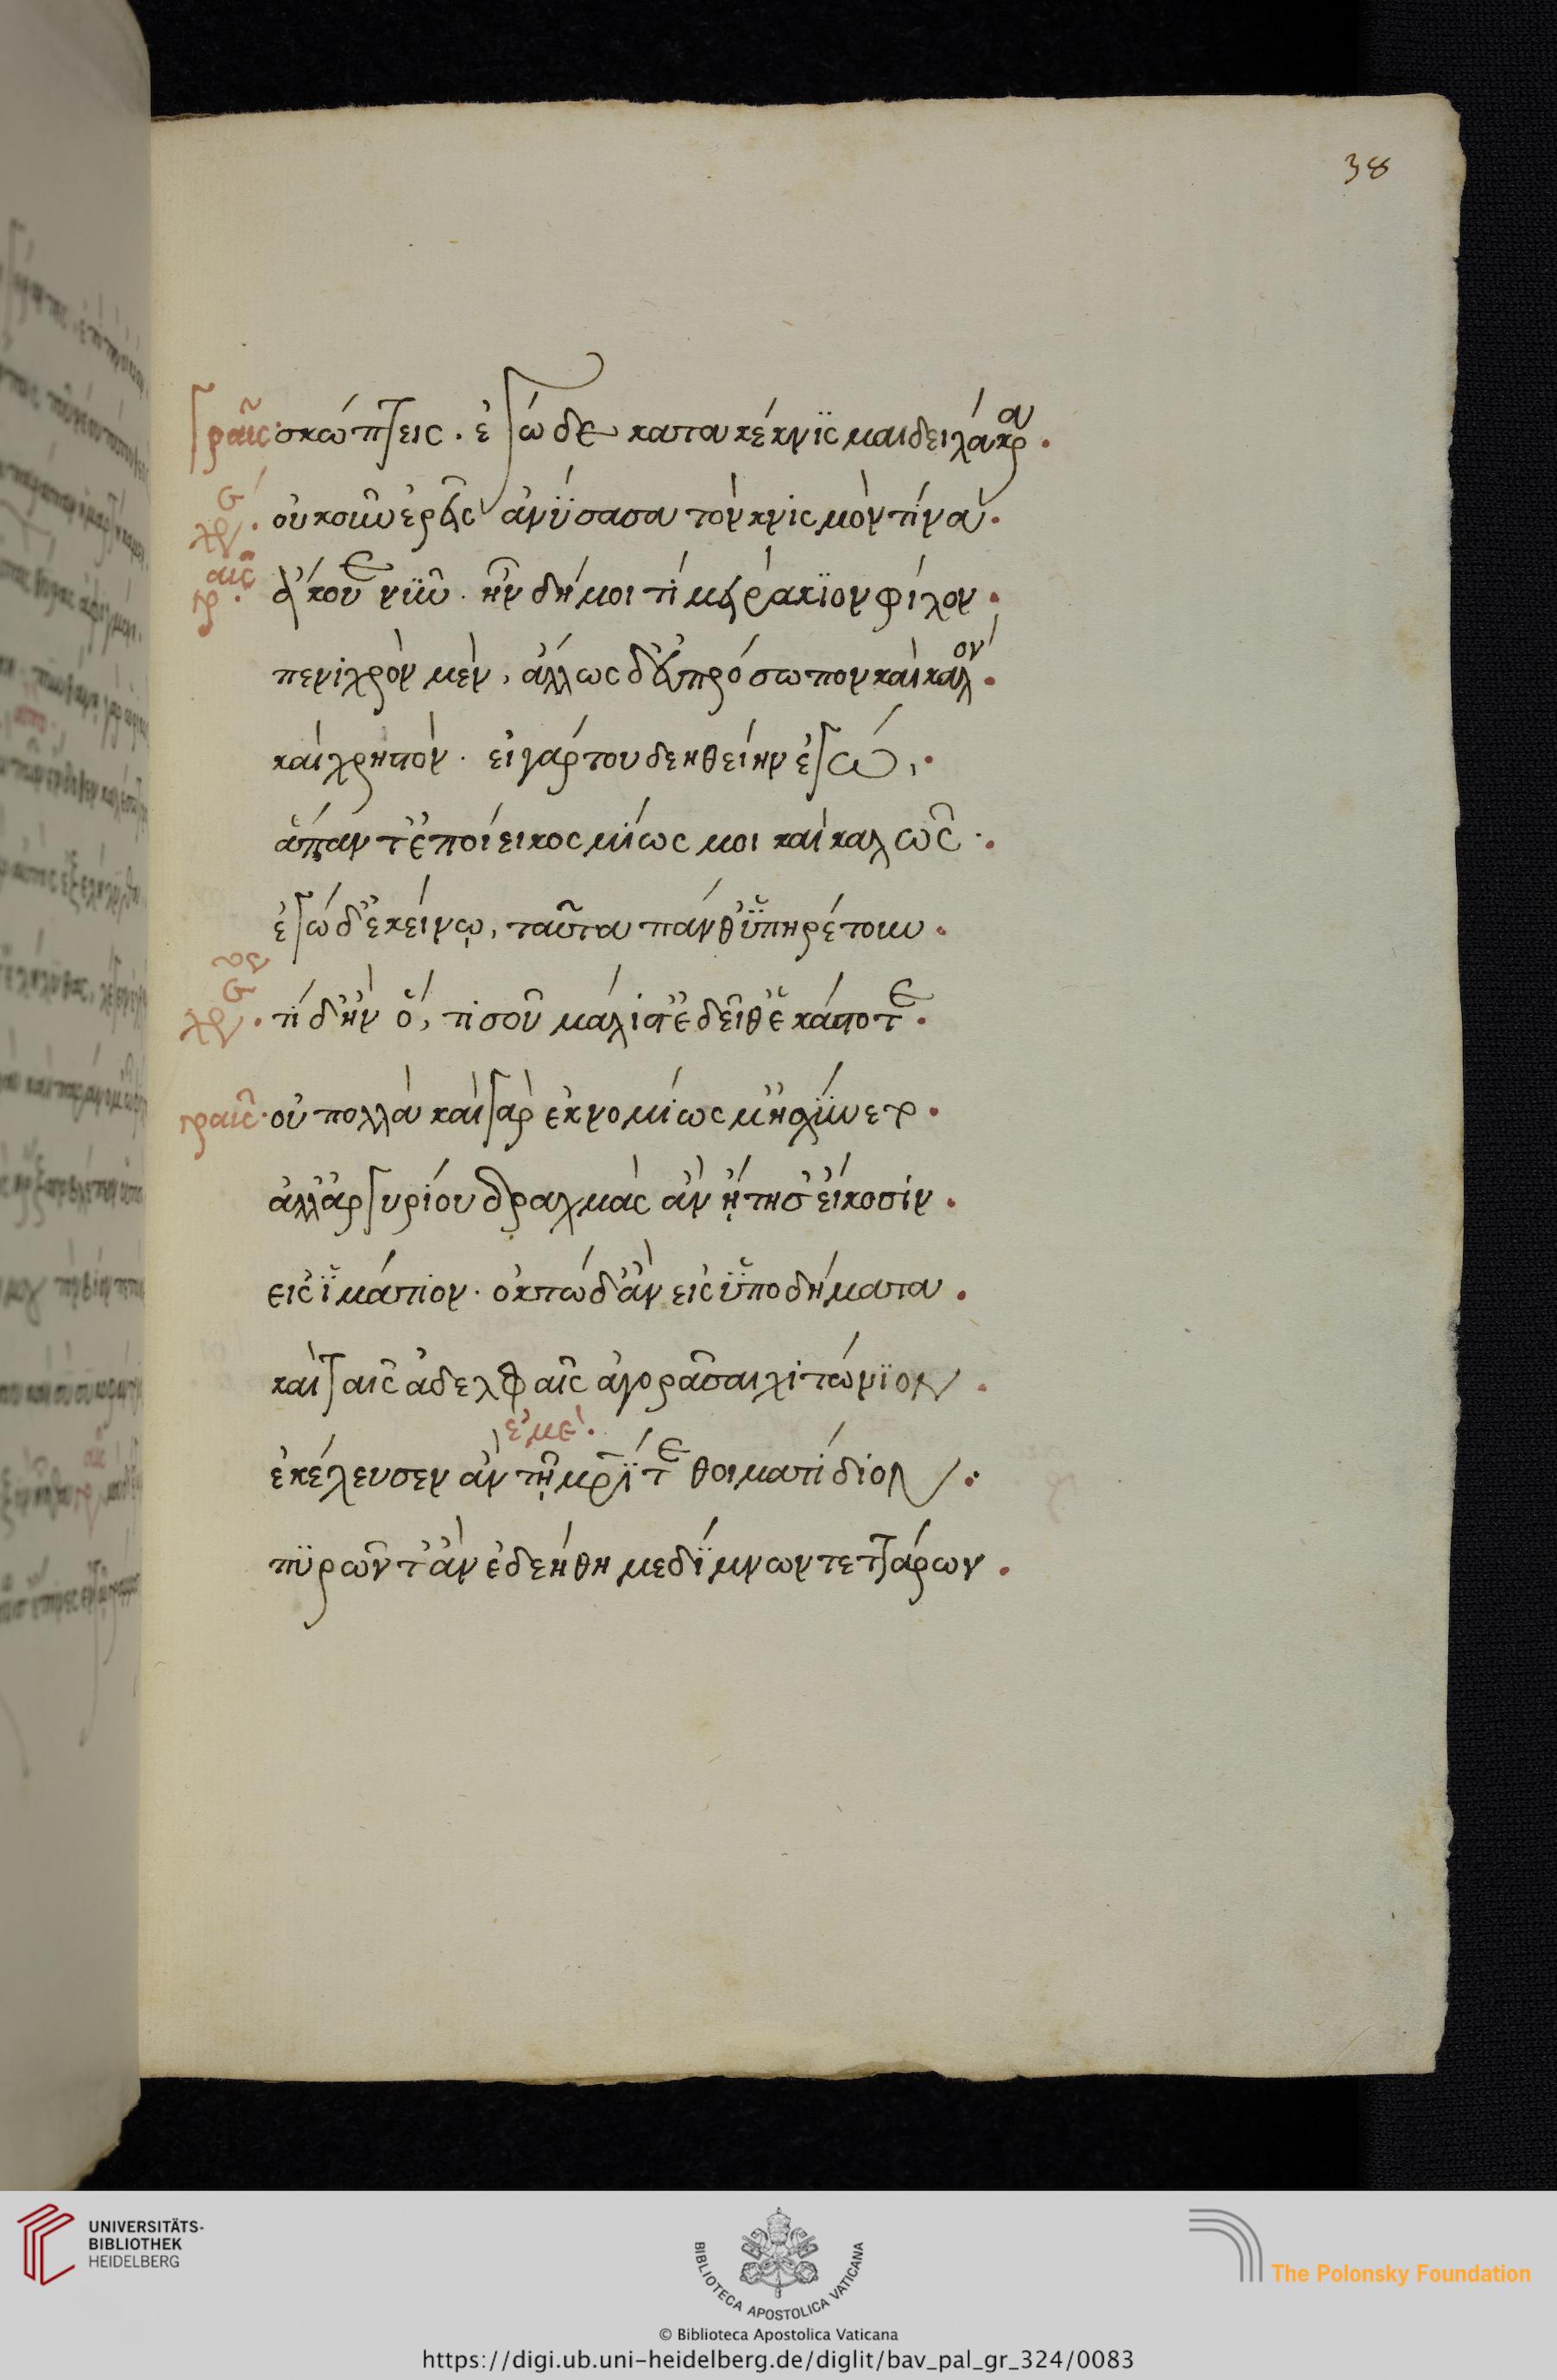 38
γραῦς· σκώπτεις. ἐγὼ δὲ κατακέκνισμαι δειλάκρα.
χρ. οὐκοῦν ἐρεῖς ἀνύσασα τὸν κνισμὸν τίνα.
γραῦς. ἄκουε νῦν. ἦν δή μοι τὶ μειράκιον φίλον.
πενιχρὸν μὲν, ἄλλως δ' εὐπρόσωπον καὶ καλόν.
καὶ χρηστόν. εἰ γάρ του δεηθείην ἐγώ,.
ἅπαντ' ἐποίει κοσμίως μοι καὶ καλῶς.
ἐγὼ δ' ἐκείνω, ταῦτα πάνθ' ὑπηρέτουν.
χρ. τί δ' ἦν ὅ, τι σοῦ μάλιστ' ἐδεῖθ' ἑκάστοτε.
γραῦς· οὐ πολλὰ καὶ γὰρ ἐκνομίως μ' ἠσχύνετο.
ἀλλ' ἀργυρίου δραχμὰς ἂν ᾔτησ' εἴκοσιν.
εἰς ἱμάτιον. ὀκτὼ δ' ἂν εἰς ὑποδήματα.
καὶ ταῖς ἀδελφαῖς ἀγοράσαι χιτώνιον.
ἐμέ.
ἐκέλευσεν ἂν τῇ μρί τε θοιματίδιον.
πυρῶν τ' ἂν ἐδεήθη μεδίμνων τεττάρων.
UNIVERSITÄTS-
BIBLIOTHEK
HEIDELBERG
BIBLIOTECA APOSTOLICA VATICANA
The Polonsky Foundation
© Biblioteca Apostolica Vaticana
https://digi.ub.uni-heidelberg.de/diglit/bav_pal_gr_324/0083